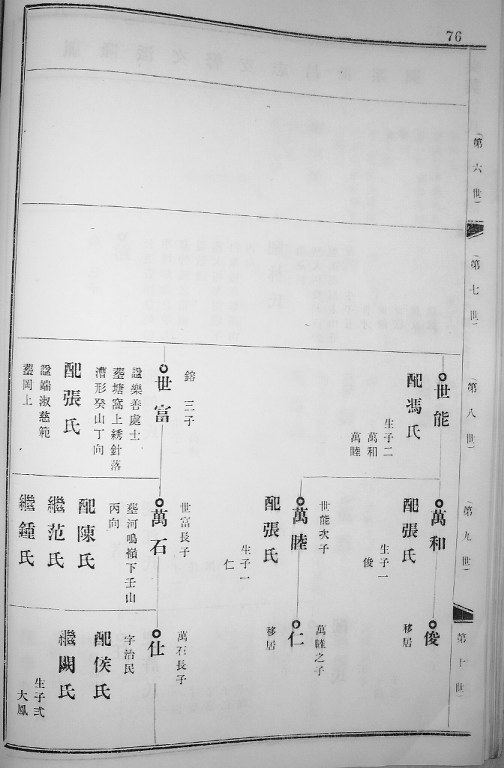 76
(第六世)
(第七世)
(第八世)
世能
配馮氏
生子二
萬和
萬睦
鎔三子
世富
諡樂善處士
塟塘窩上綉針落
漕形癸山丁向
配張氏
諡端淑慈範
塟岡上
(第九世)
萬和
配張氏
生子一
俊
世能次子
萬睦
配張氏
生子一
仁
世富長子
萬石
塟河鳴嶺下壬山
丙向
配陳氏
繼范氏
繼鍾氏
(第十世)
俊
移居
萬睦之子
仁
移居
萬石長子
仕
字治民
配侯氏
繼闕氏
生子弍
大鳳